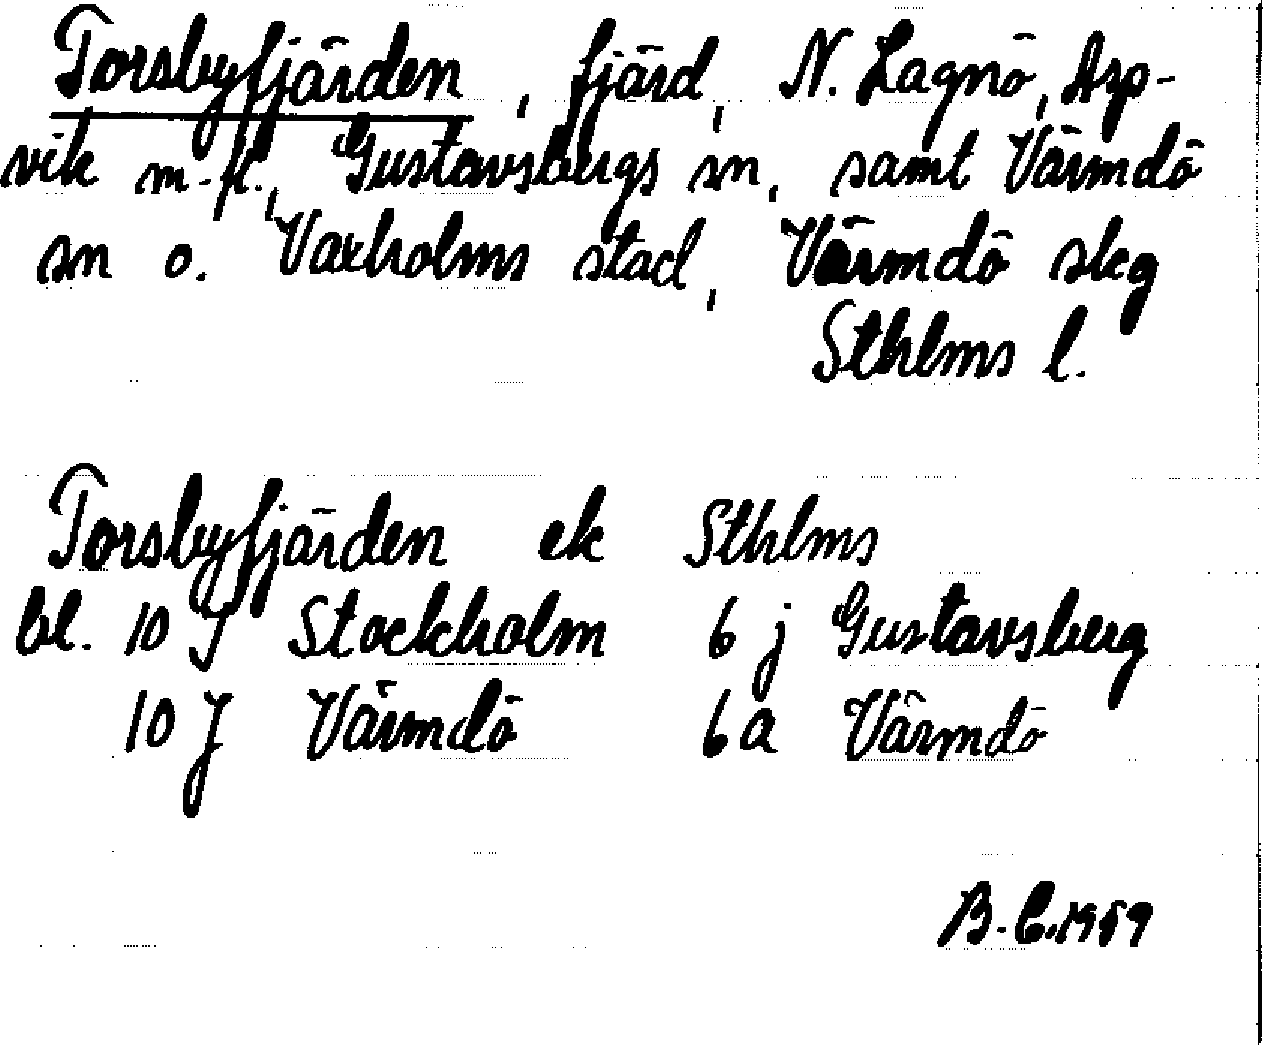 Torsbyfjärden, fjärd, N. Lagnö, Asp-
vik m.fl., Gustavsbergs sn, samt Värmdö
sn o. Vaxholms stad, Värmdö skg
Sthlms l.
Torsbyfjärden ek Sthlms
bl. 10 I Stockholm 6 j Gustavsberg
10 J Värmdö 6 a Värmdö
B. C. 1959